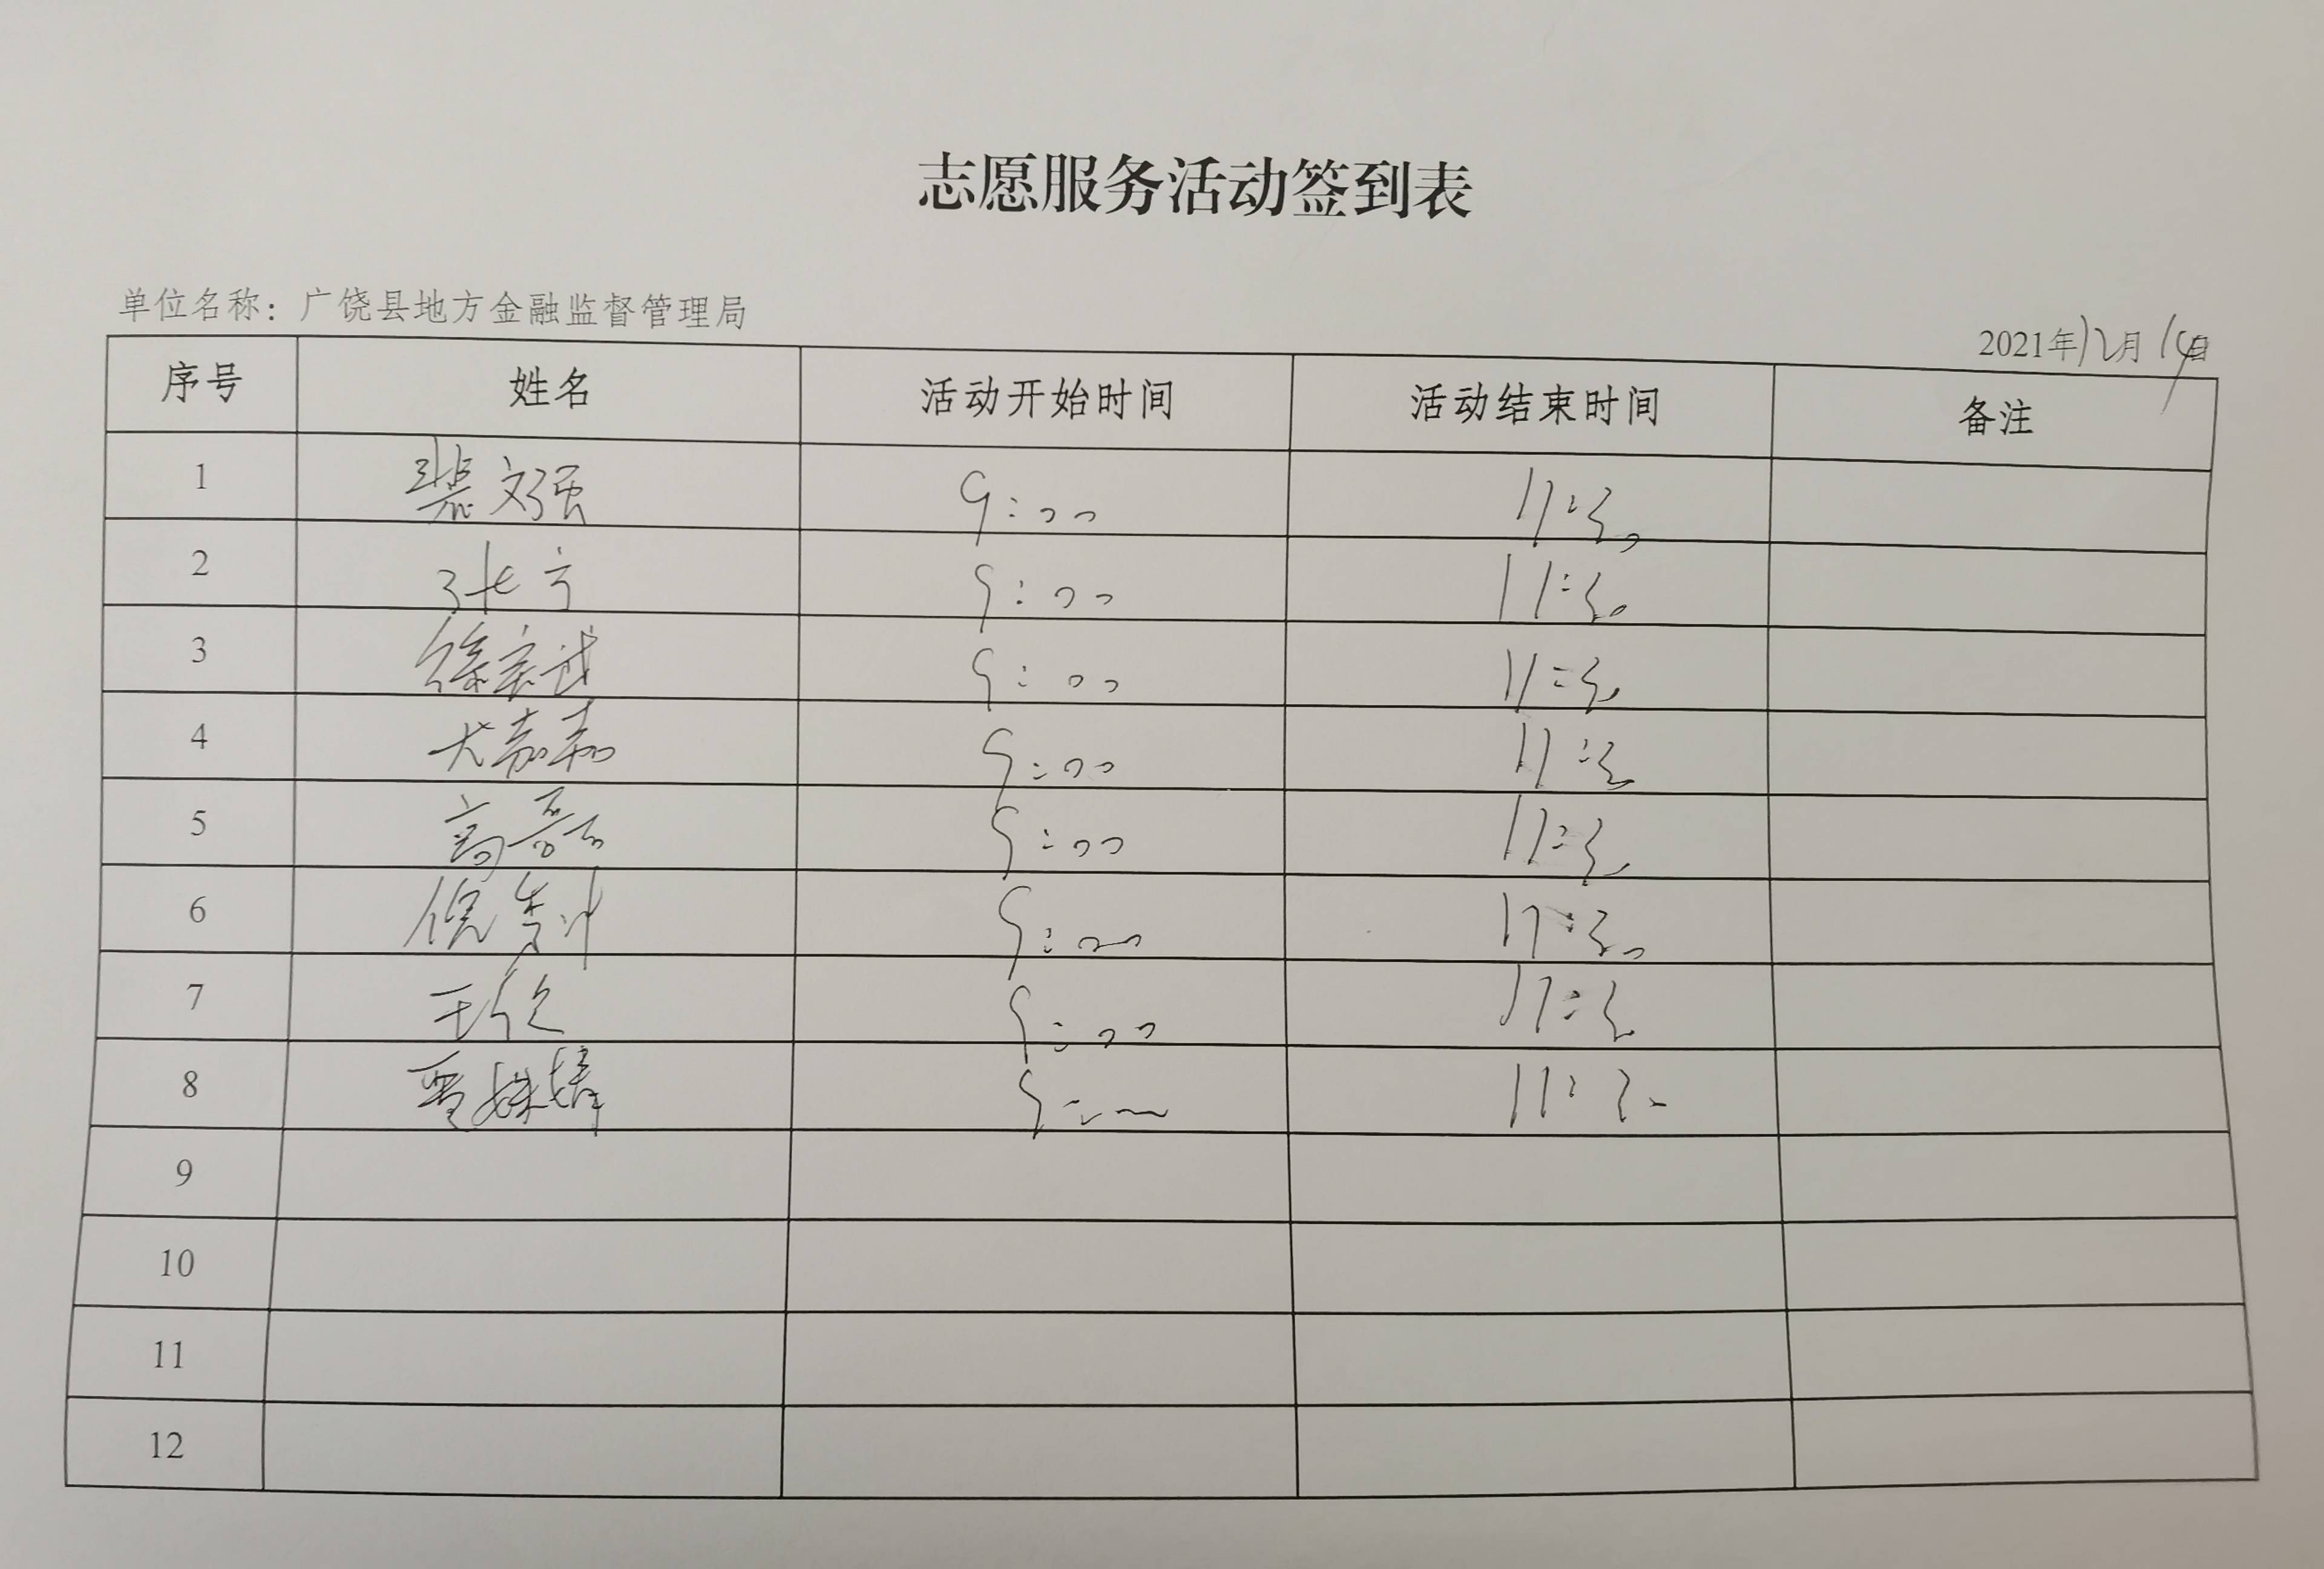 志愿服务活动签到表
单位名称：广饶县地方金融监督管理局
2021年12月14日
序号 姓名 活动开始时间 活动结束时间 备注
1 裴文强 9:00 11:30
2 张方 9:00 11:30
3 徐宗武 9:00 11:30
4 尤嘉嘉 9:00 11:30
5 高磊 9:00 11:30
6 倪 9:00 11:30
7 王伦 9:00 11:30
8 贾姝婧 9:00 11:30
9
10
11
12